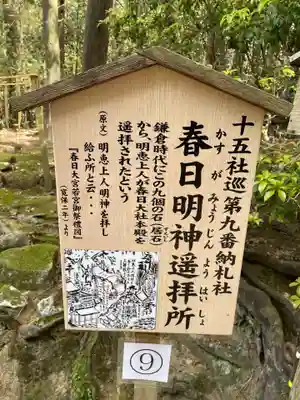 十五社巡第九番納札社
春日明神遥拝所
かすがみょうじんようはいしょ
鎌倉時代にこの九個の石(居石)
から、明恵上人が春日大社本殿を
遥拝されたという
(原文) 明恵上人明神を拝し
給ふ所と云・・・
『春日大宮若宮御祭禮図』
(寛保二年)より
⑨